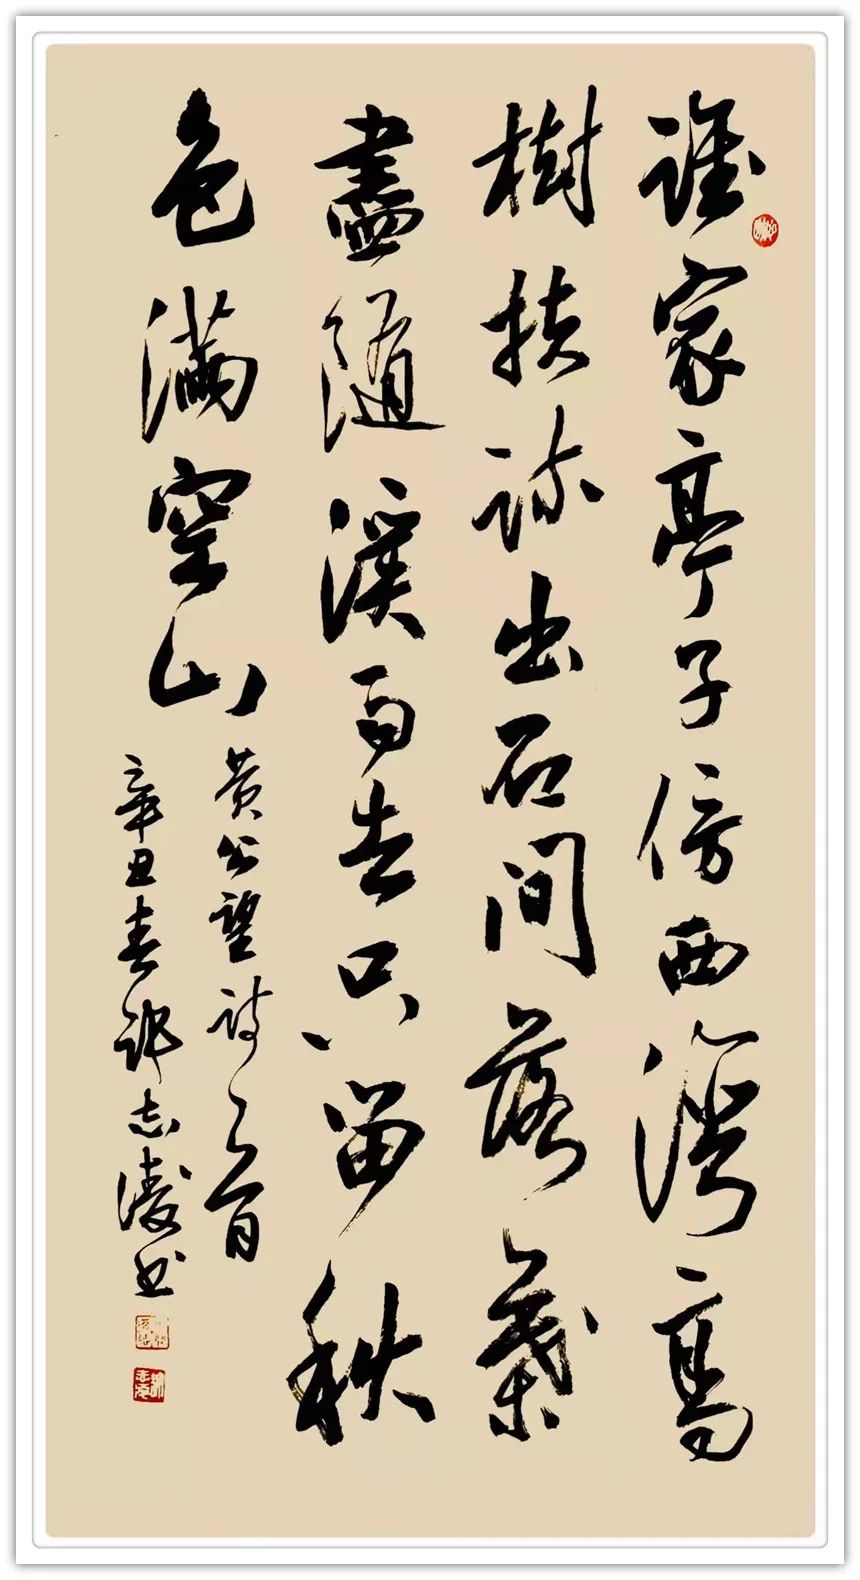 誰家亭子傍西灣高
樹扶疏出石間落葉
盡隨溪雨去只留秋
色滿空山
黄公望詩一首
辛丑春志凌书